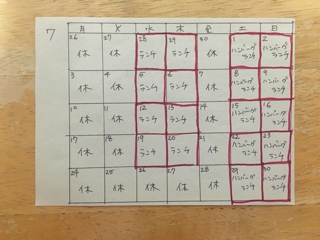 7 月 火 水 木 金 土 日
26 27 28 29 30 1 2
休 休 ランチ ランチ 休 ハンバーグ ハンバーグ
ランチ ランチ
3 4 5 6 7 8 9
休 休 ランチ ランチ 休 ハンバーグ ハンバーグ
ランチ ランチ
10 11 12 13 14 15 16
休 休 ランチ ランチ 休 ハンバーグ ハンバーグ
ランチ ランチ
17 18 19 20 21 22 23
休 休 ランチ ランチ 休 ハンバーグ ハンバーグ
ランチ ランチ
24 25 26 27 28 29 30
休 休 休 休 休 ハンバーグ ハンバーグ
ランチ ランチ